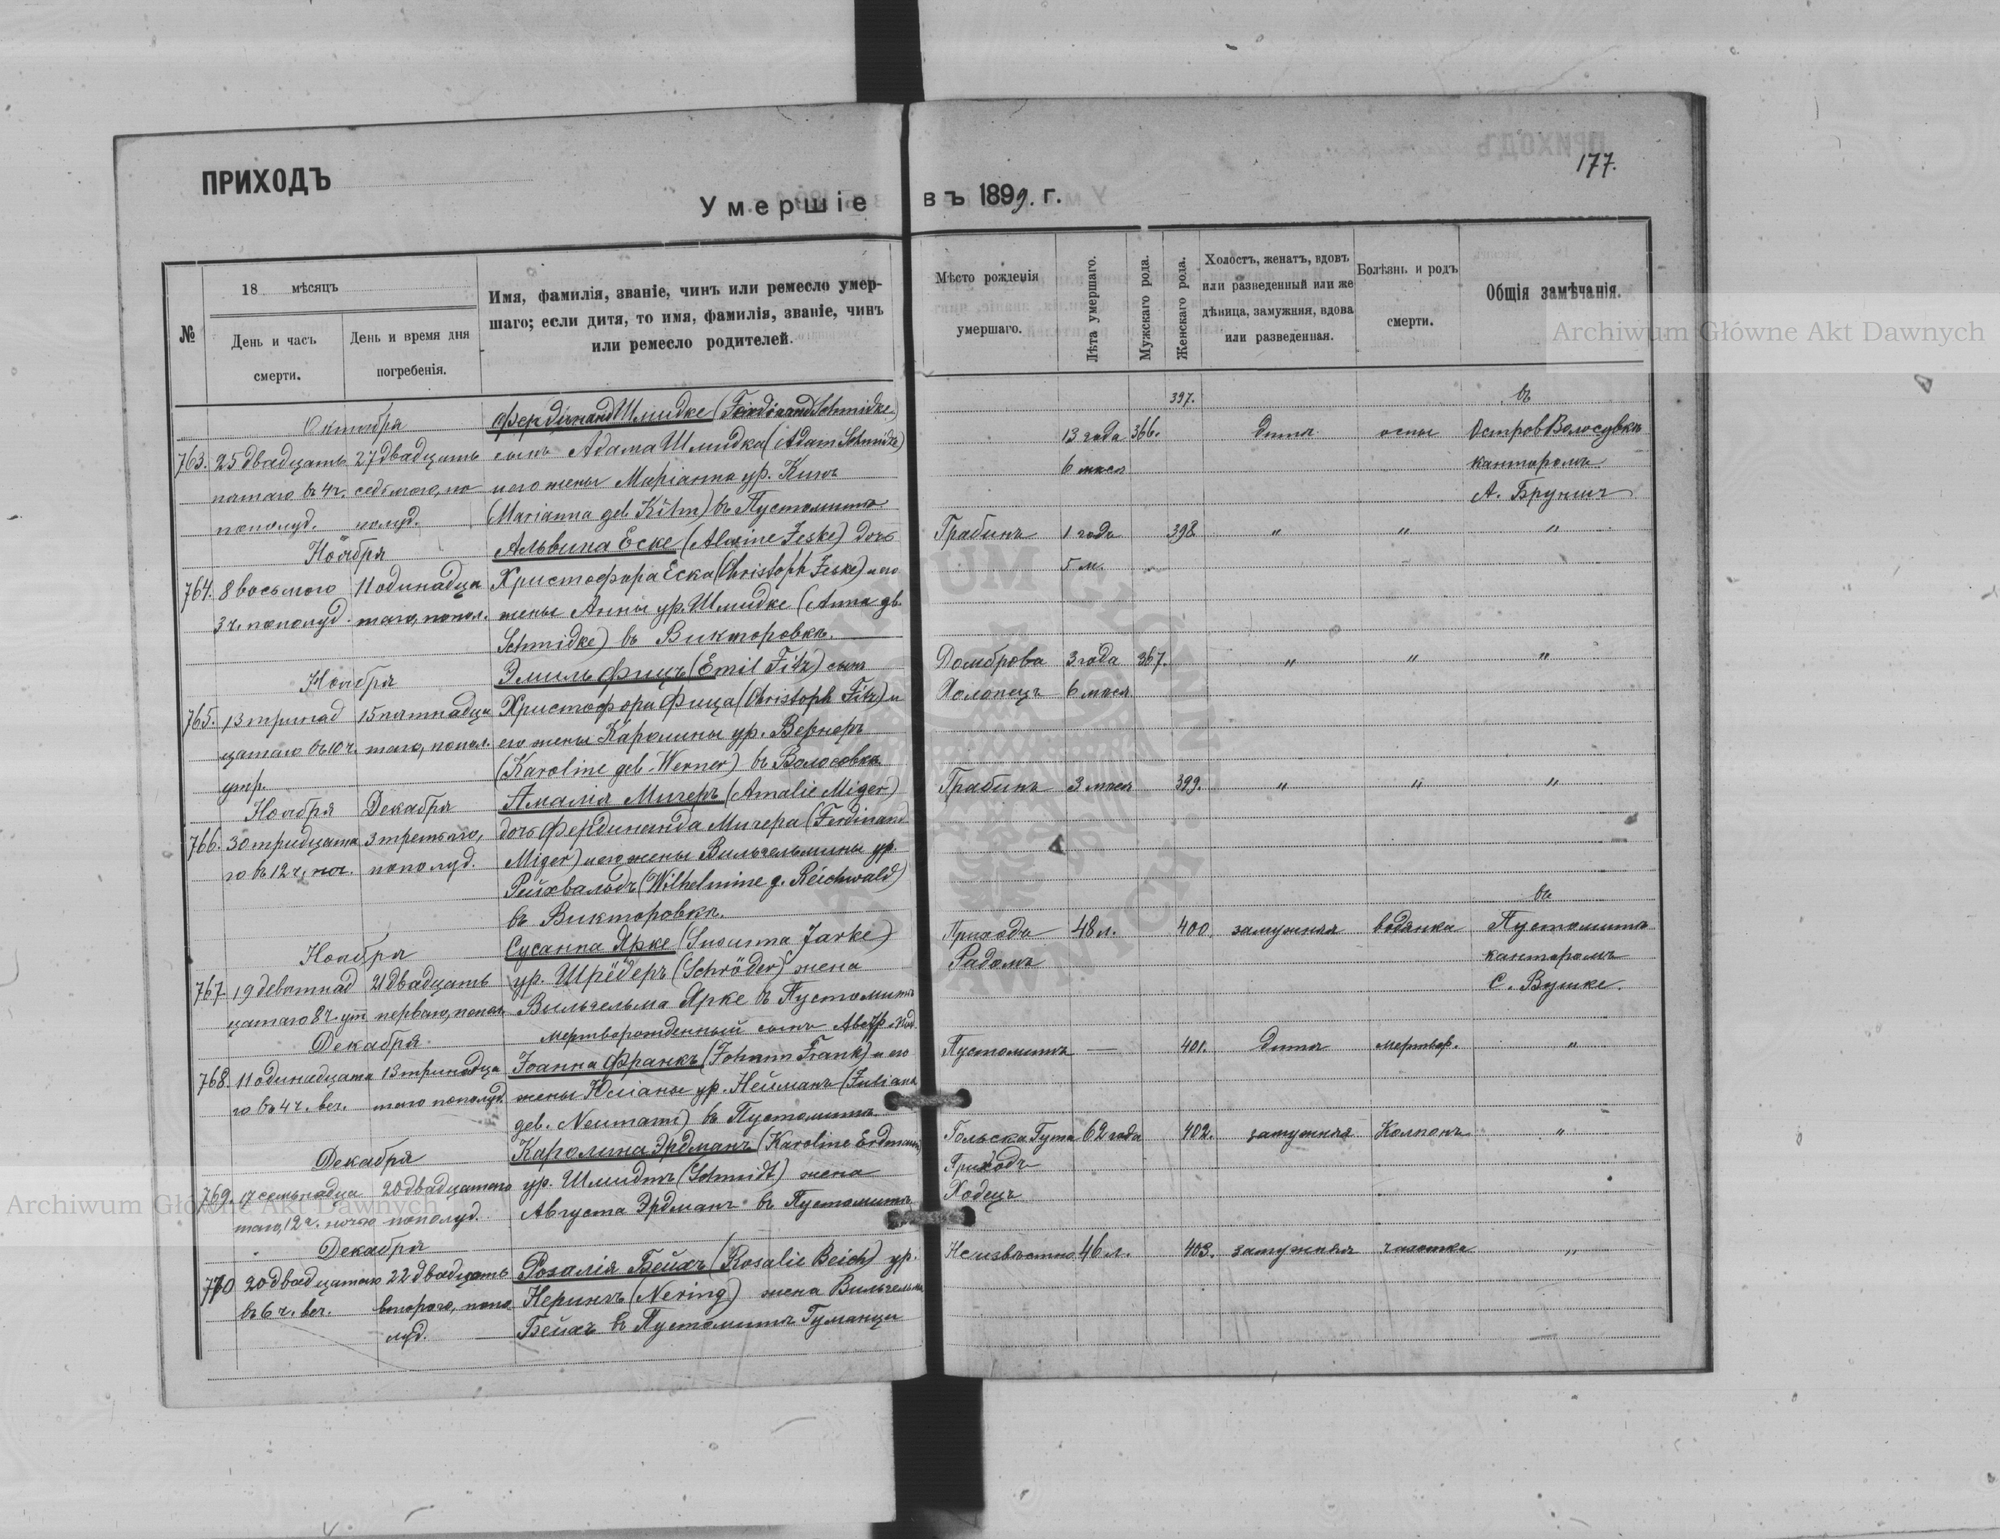 ПРИХОДЪ
177.
Умершіе въ 1899. г.
№
18 мѣсяцъ
День и часъ смерти.
День и время дня погребенія.
Имя, фамилія, званіе, чинъ или ремесло умершаго; если дитя, то имя, фамилія, званіе, чинъ или ремесло родителей.
Мѣсто рожденія умершаго.
Лѣта умершаго.
Мужскаго рода.
Женскаго рода.
Холостъ, женатъ, вдовъ или разведенный или же дѣвица, замужняя, вдова или разведенная.
Болѣзнь и родъ смерти.
Общія замѣчанія.
Archiwum Główne Akt Dawnych
397.
Октября
763. 25 двадцать 27 двадцать
пятаго въ 4 ч. седьмого, по
пополуд. полуд.
Фердинанд Шмидке (Ferdinand Schmidke)
сынъ Адама Шмидка (Adam Schmidke)
и его жены Маріанна ур. Кинъ
(Marianna geb. Kühn) въ Пустомитѣ
13 года 366. дитя оспы
6 мѣся
въ
Остров Волосувкѣ
канторомъ
А. Брунигъ
Ноября
764. 8 восьмого 11 одинадца
3 ч. пополуд. таго, попол.
Альвина Еске (Alwine Jeske) дочь
Христофора Еска (Christoph Jeske) и его
жены Анны ур. Шмидке (Anna geb.
Schmidke) въ Викторовкѣ.
Грабинъ 1 годъ 398. " " "
5 м.
Ноября
765. 13 тринад 15 пятнадца
цатаго въ 10 ч. таго, попол.
утр.
Эмиль Фицъ (Emil Fitz) сынъ
Христофора Фица (Christoph Fitz) и
его жены Каролины ур. Вернеръ
(Karoline geb. Werner) въ Волосовкѣ
Домброва 3 года 367. " " "
Холопецъ 6 мѣся
Ноября Декабря
766. 30 тридцата 3 третьяго,
го въ 12 ч. ноч. пополуд.
Амалія Мигеръ (Amalie Miger)
дочь Фердинанда Мигера (Ferdinand
Miger) и его жены Вильгельмины ур.
Рейхвальдъ (Wilhelmine g. Reichwald)
въ Викторовкѣ.
Грабинъ 3 мѣся 399. " " "
Ноября
767. 19 девятнад 21 двадцать
цатаго 8 ч. ут перваго, попол
Сусанна Ярке (Susanna Jarke)
ур. Шрёдеръ (Schröder) жена
Вильгельма Ярке въ Пустомитѣ
Приходъ 48 л. 400. замужняя водянка
Радомъ
въ
Пустомитѣ
канторомъ
С. Вушке.
Декабря
768. 11 одинадцата 13 тринадца
го въ 4 ч. веч. таго пополуд.
мертворожденный сынъ
Іоанна Франкъ (Johann Frank) и его
жены Юліаны ур. Нейманъ (Juliana
geb. Neumann) въ Пустомитѣ
Пустомитъ — 401. дитя мертвор. "
Декабря
769. 17 семьнадца 20 двадцатого
таго, 12 ч. ночью пополуд.
Каролина Эрдманъ (Karoline Erdmann)
ур. Шмидтъ (Schmidt) жена
Августа Эрдманъ въ Пустомитѣ
Гольска Гута 62 года 402. замужняя "
Приходъ
Ходечъ
Декабря
770 20 двадцатаго 22 двадцать
въ 6 ч. веч. второго, попо
луд.
Розалія Бейхъ (Rosalie Beich) ур.
Нерингъ (Nering) жена Вильгельма
Бейхъ въ Пустомитѣ Гуманци
Неизвѣстно 46 л. 403. замужняя чахотка "
Archiwum Główne Akt Dawnych